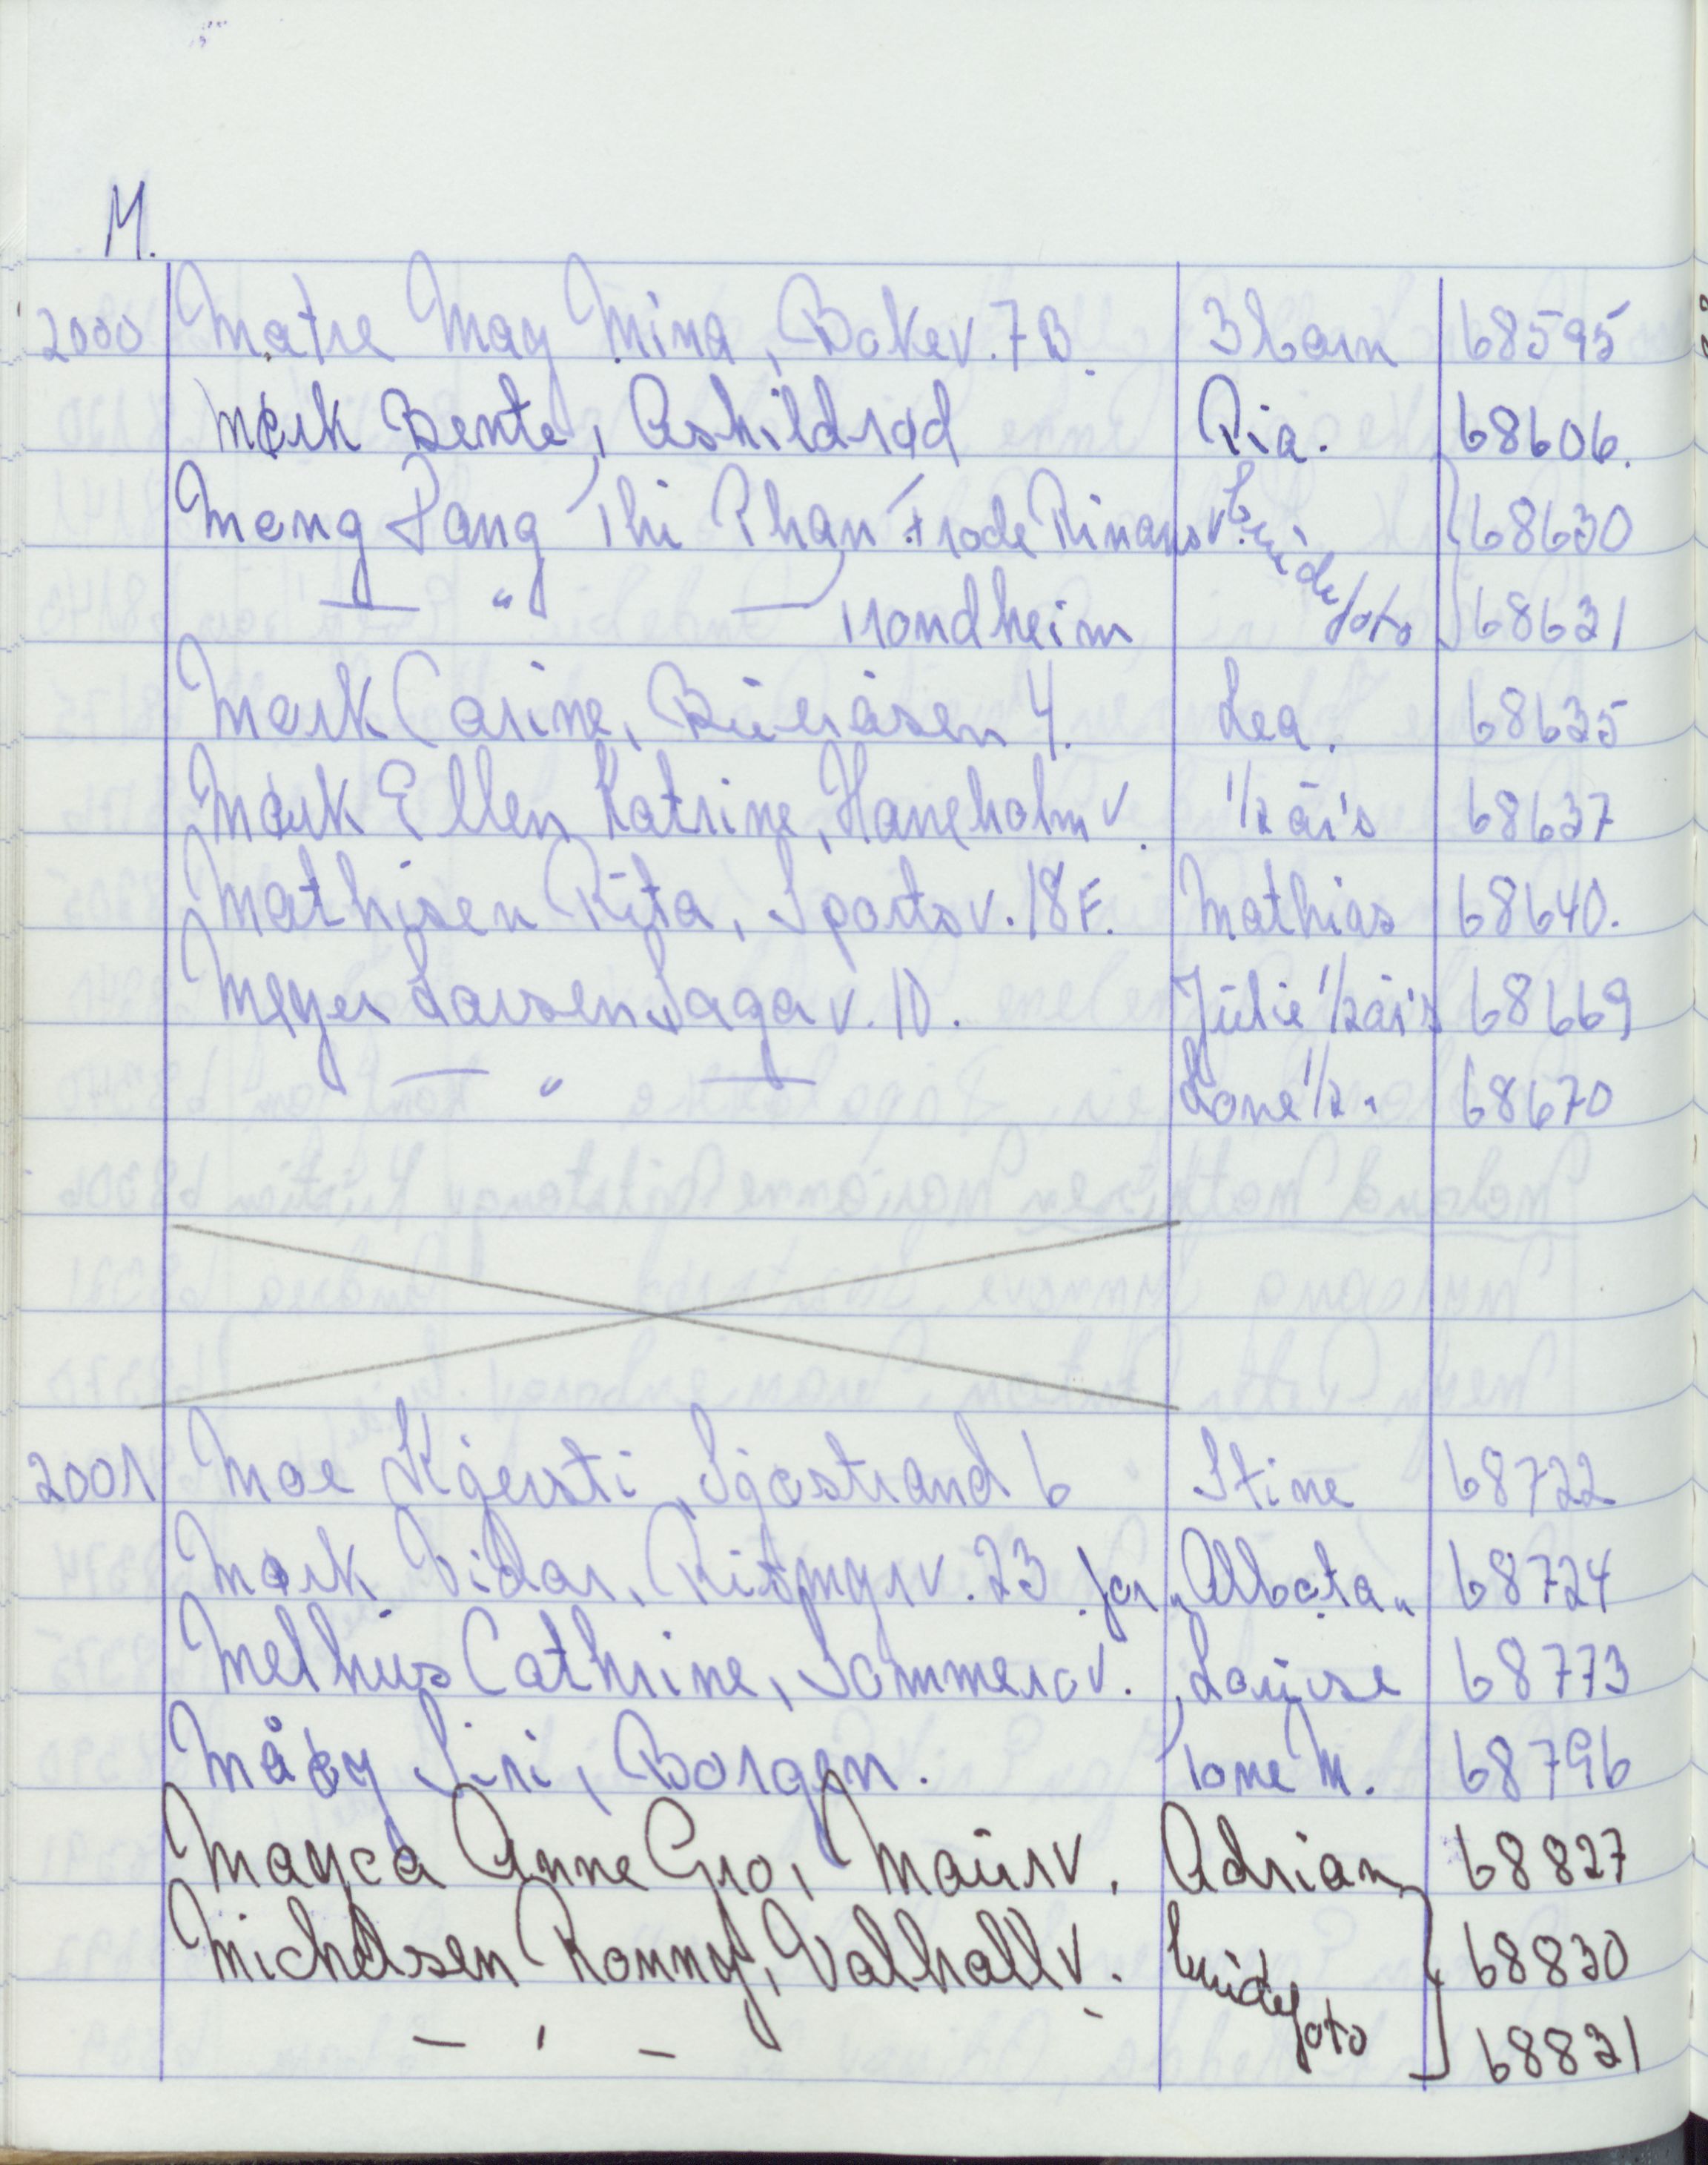 M.
2000 Matre May Mina, Bokev. 7B. 3 barn 68595
Mørk Bente, Åshildrød Pia. 68606.
Meng Pang Thi Phan Frode Rinansv. brude 68630
— " — Trondheim foto 68631
Mørk Carine, Bueråsen 4. Lea. 68635
Mørk Ellen Katrine, Haneholmv. 1/2 år's 68637
Mathisen Rita, Sportsv. 18F. Mathias 68640.
Meyer Larsen Sagav. 10. Julie 1/2 år's 68669
— " — Lone 1/2 " 68670
2001 Moe Kjersti, Sjøstrand 6 Stine 68722
Mørk Vidar, Ritmyrv. 23 for "Albata" 68724
Melhus Cathrine, Sommerov. Louise 68773
Måøy Siri, Borgen. Tone M. 68796
Mayca Anne Gro, Maurv. Adrian 68827
Michelsen Ronny, Valhallv. brude 68830
— " — foto 68831